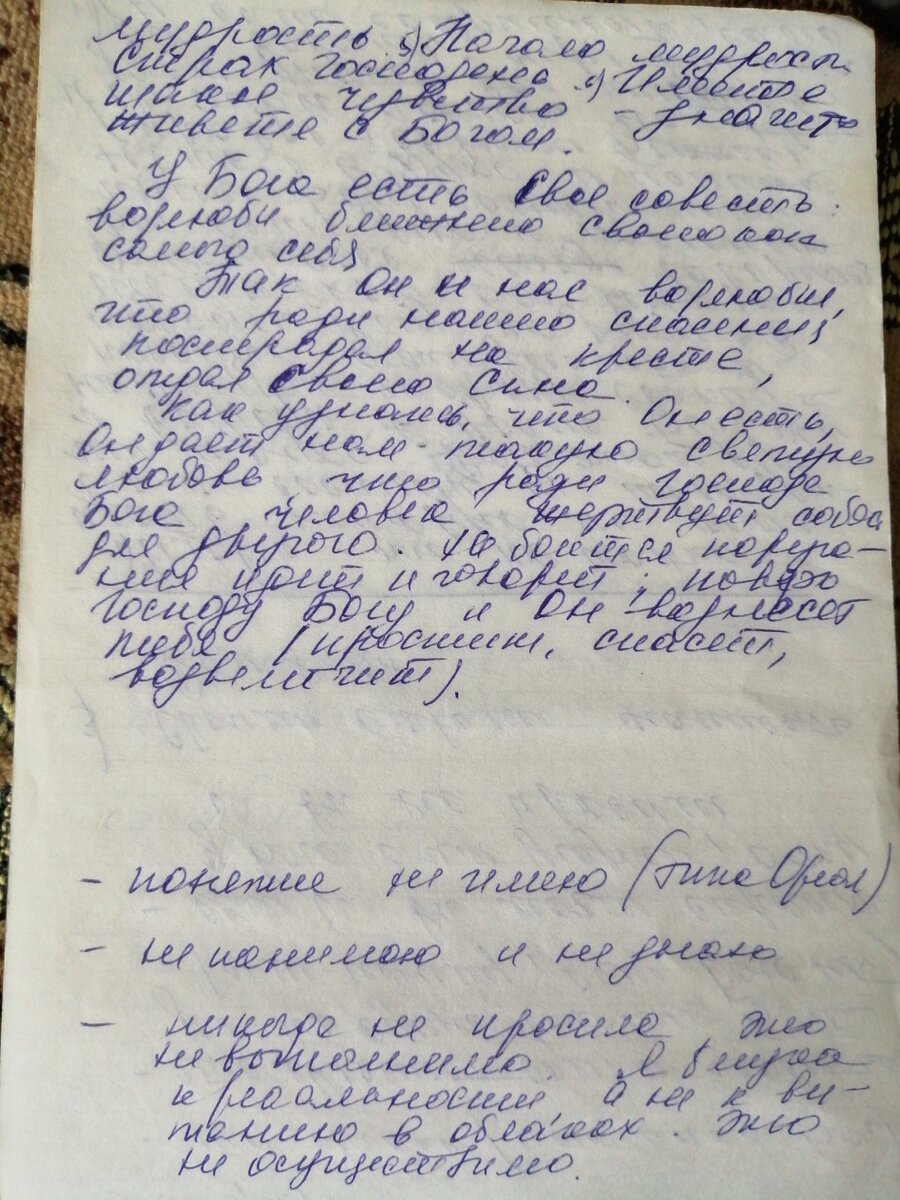 мудрость. 5) Начало мудрости
страх Господень. 6) Имейте
такое чувство - значит
живете с Богом.
У Бога есть своя совесть:
возлюби ближнего своего как
самого себя
Так Он и нас возлюбил,
что ради нашего спасения,
пострадал на кресте,
отдал Своего Сина.
Как узнать, что Он есть,
Он дает нам такую святую
любовь, что ради Господа
Бога человек жертвует собой
для другого. Не боится поруга-
ние идет и говорит:
Господу Богу и Он вознесет
тебя (простит, спасет,
возвеличит).
- понятие не имею (типа Ореол)
- не понимаю и не знаю
- никогда не просила это
не выполнимо. Я ближе
к реальности а не к ви-
танию в облаках. Это
не осуществимо.